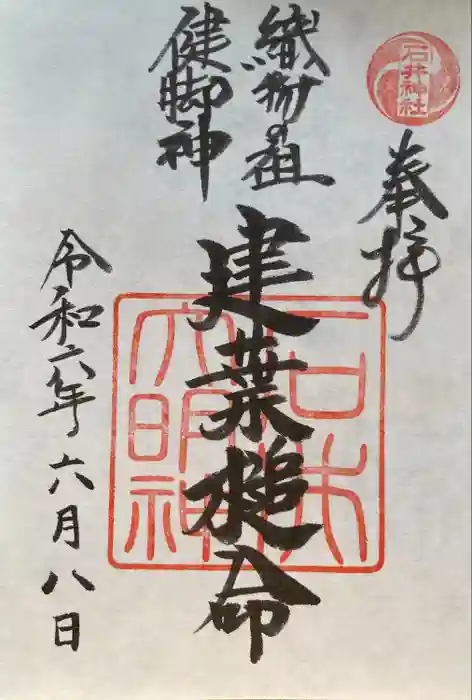 石井神社
奉拝
織物の祖
健脚神
建葉槌命
大明神
令和六年六月八日